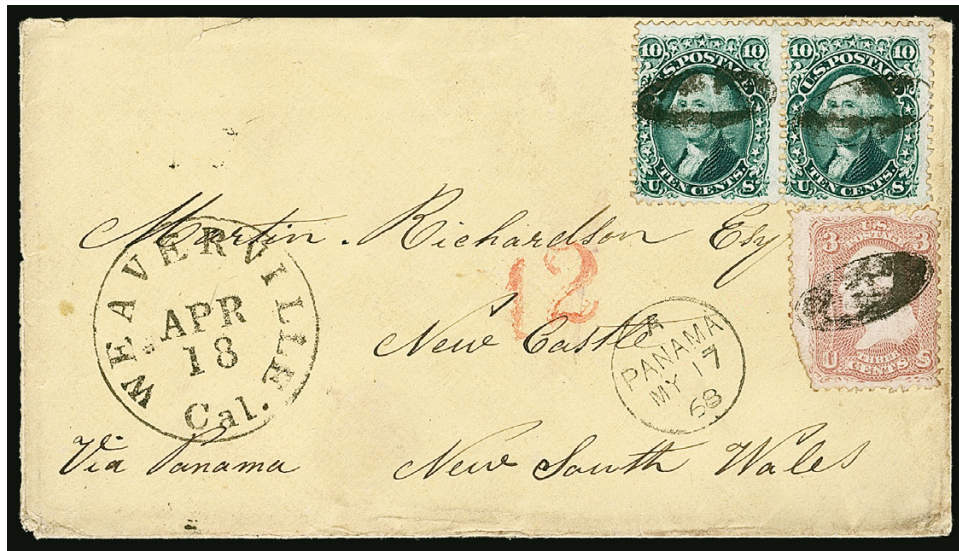 10 10
U.S. POSTAGE
TEN CENTS.
U S
10 10
U.S. POSTAGE
TEN CENTS.
U S
3 3
U.S.
POSTAGE
THREE
CENTS
U S
Martin. Richardson Esq
12
WEAVERVILLE
APR
18
Cal.
New Castle
A
PANAMA
MY 17
68
Via Panama
New South Wales